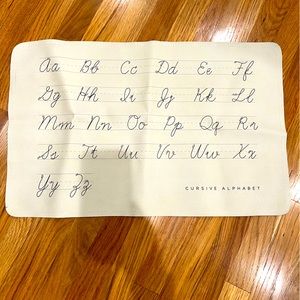 Aa Bb Cc Dd Ee Ff
Gg Hh Ii Jj Kk Ll
Mm Nn Oo Pp Qq Rr
Ss Tt Uu Vv Ww Xx
Yy Zz
CURSIVE ALPHABET